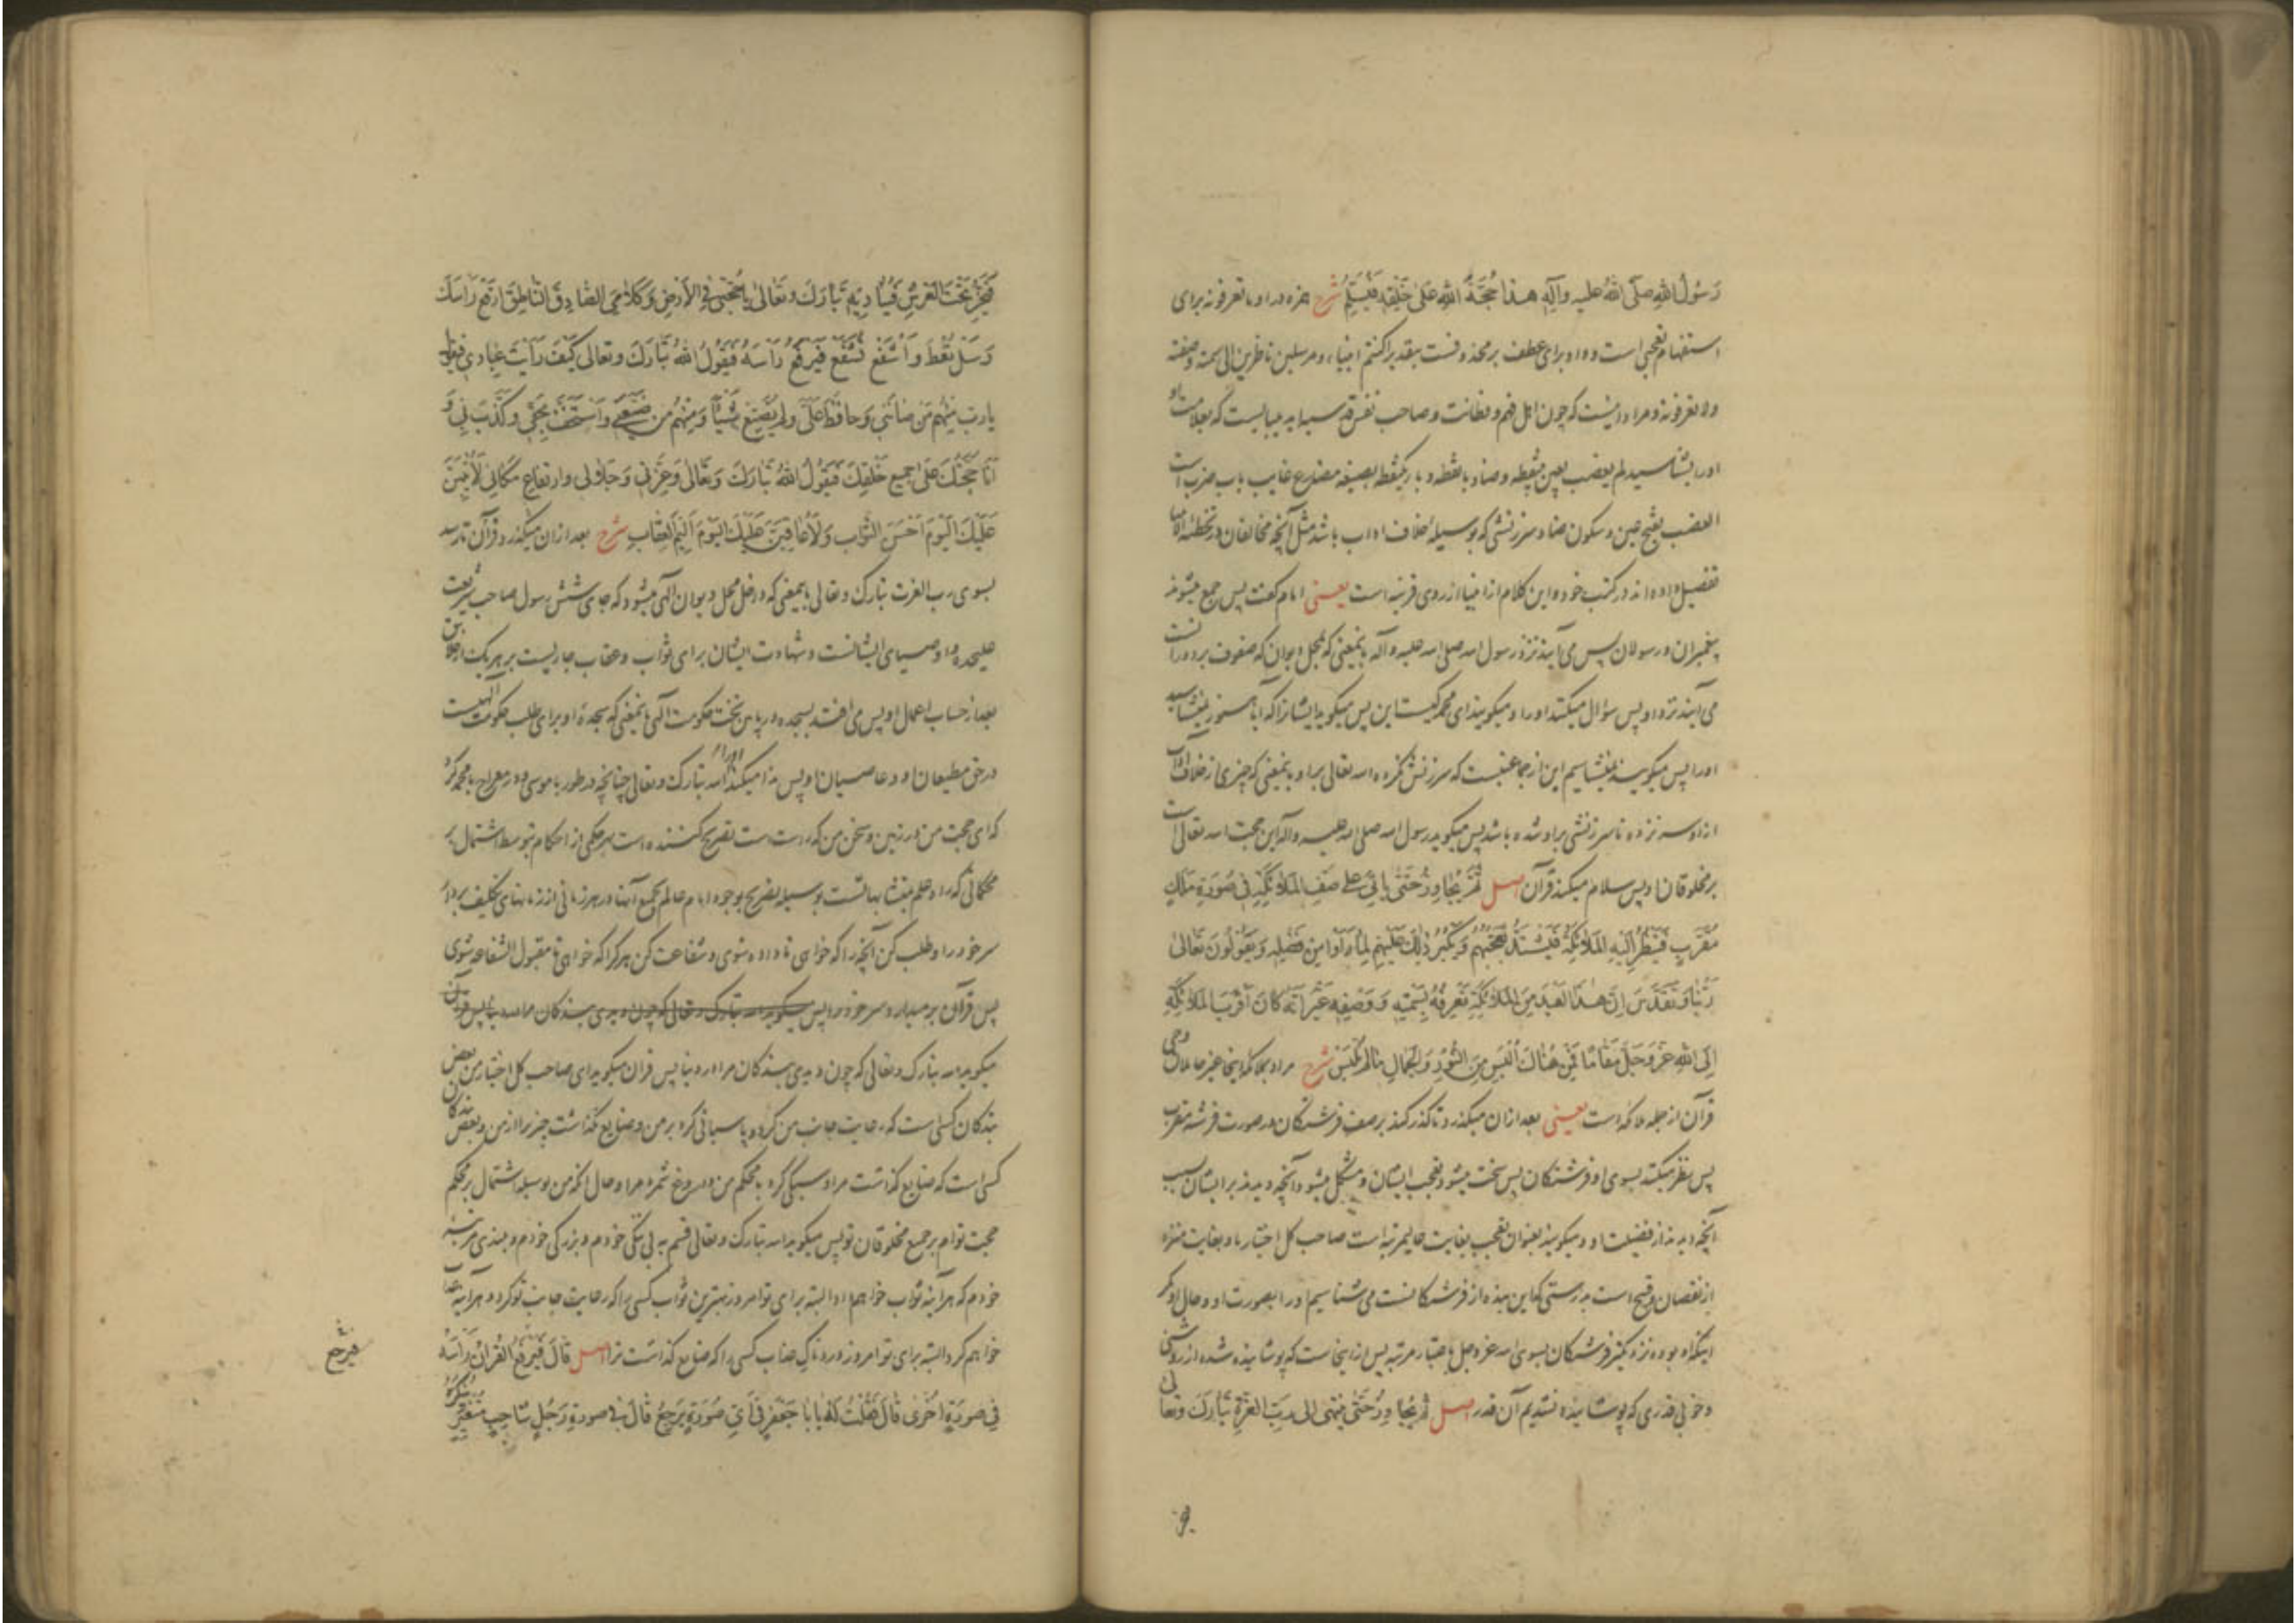 رَسُولُ اللهِ صلّى اللهُ عليه وآلِهِ هذا حُجَّةُ اللهِ عَلى خَلْقِهِ فَيُسَلِّمُ شرح همزه در او ما تعرفونه برای
استفهام تعجبی است و واو برای عطف بر محذوفست بتقدیر اکنتم انبیاء ومرسلین ناظرین الی سمته وصفته
ولا تعرفونه و مراد اینست که چون اهل فهم و فطانت و صاحب نفس قدسیه اید میبایست که بعلامت او
اورا بشناسید لم یعضب بعین بینقطه و ضاد بانقطه و با یکنقطه بصیغه مضارع غایب باب ضرب است
العضب بفتح عین و سکون ضاد سرزنشی که بوسیله خلاف اداب باشد مثل آنچه مخالفان در تخطئه انبیا
تفصیل داده اند در کتب خود و این کلام از انبیا از روی قرینه است یعنی امام گفت پس جمع میشوند
پیغمبران و رسولان پس می آیند نزد رسول الله صلی الله علیه وآله بامعنی که بمحل دیوان که صفوف بر دور آنست
می آیند نزد او پس سؤال میکنند اورا و میگویند ای محمد کیست این پس میگوید ایشانرا که آیا هنوز نمیشناسید
اورا پس میگویند نمیشناسیم این از جماعتیست که سرزنش نکرده الله تعالی براو بامعنی که چیزی از خلاف آداب
ازاو سر نزده تا سرزنشی براو شده باشد پس میگوید رسول الله صلی الله علیه وآله این حجت الله تعالی است
بر مخلوقان او پس سلام میکند قرآن اصل ثُمَّ يُجاوِزُ حَتّى يَأتي على صَفِّ المَلائِكَةِ في صُورَةِ مَلَكٍ
مُقَرَّبٍ فَيَنظُرُ إلَيْهِ المَلائِكَةُ فَيَشتَدُّ تَعَجُّبُهُمْ وَيَكْبُرُ ذلِكَ عَلَيْهِمْ لِما رَأوا مِن فَضْلِهِ وَيَقُولُونَ تَعالى
رَبُّنا وَتَقَدَّسَ إنَّ هذا العَبْدَ مِنَ المَلائِكَةِ نَعْرِفُهُ بِسَمْتِهِ وَوَصْفِهِ غَيْرَ أنَّهُ كانَ أقْرَبَ المَلائِكَةِ
إلَى اللهِ عَزَّ وَجَلَّ مَقامًا فَمِنْ هُناكَ أُلْبِسَ مِنَ النُّورِ وَالجَمالِ ما لَمْ نُلْبَسْ شرح مراد بملائکه اینجا غیر حاملان وحی
قرآن از جمله ملائکه است یعنی بعد ازان میگذرد تا گذر کند بر صف فرشتگان در صورت فرشته مقرب
پس نظر میکنند بسوی او فرشتگان پس سخت میشود تعجب ایشان و مشکل میشود آنچه دیدند بر ایشان بسبب
آنچه دیدند از فضیلت او و میگویند بعنوان تعجب بغایت عالیمرتبه است صاحب کل اختیار ما و بغایت منزه
از نقصان و قبیح است بدرستی که این بنده از فرشتگانست می شناسیم اورا بصورت او و حال او مگر
اینکه او بوده نزدیکتر فرشتگان بسوی الله عزوجل باعتبار مرتبه پس ازینجاست که پوشانیده شده از روشنی
وخوبی قدری که پوشانیده نشدیم آن قدر اصل ثُمَّ يُجاوِزُ حَتّى يَنتَهي إلى رَبِّ العِزَّةِ تَبارَكَ وتَعالى
فَيَخِرُّ تَحْتَ العَرْشِ فَيُنادِيهِ تَبارَكَ وتَعالى يا حُجَّتي فِي الأرْضِ وَكَلامِيَ الصّادِقَ النّاطِقَ ارْفَعْ رَأسَكَ
وَسَلْ تُعْطَ وَاشْفَعْ تُشَفَّعْ فَيَرْفَعُ رَأسَهُ فَيَقُولُ اللهُ تَبارَكَ وتعالى كَيْفَ رَأيْتَ عِبادي فيقول
يا رَبِّ مِنْهُمْ مَن صانَني وَحافَظَ عَلَيَّ ولَمْ يُضَيِّعْ شَيْئًا وَمِنْهُمْ مَن ضَيَّعَني وَاسْتَخَفَّ بِحَقّي وكَذَّبَ بي وَ
أنا حُجَّتُكَ عَلى جَميعِ خَلْقِكَ فَيَقُولُ اللهُ تَبارَكَ وَتَعالى وَعِزَّتي وَجَلالي وارتفاعِ مَكاني لَأُثيبَنَّ
عَلَيْكَ اليَوْمَ أحْسَنَ الثَّوابِ وَلَأُعاقِبَنَّ عَلَيْكَ اليَوْمَ أليمَ العِقابِ شرح بعد ازان میگذرد قرآن تا رسد
بسوی رب العزت تبارک وتعالی بامعنی که داخل محل دیوان الهی میشود که جای شش رسول صاحب شریعت
علیحده و اوصیای ایشانست و شهادت ایشان برای ثواب و عقاب جاریست بر هر یک از خلایق
بعد از حساب اعمال او پس می افتد بسجده در پای تخت حکومت الهی بامعنی که سجده او برای طلب حکومت الهیست
در حق مطیعان او و عاصیان او پس ندا میکند اورا الله تبارک وتعالی چنانچه در طور با موسی و در معراج با محمد کرد
که ای حجت من در زمین و سخن من که راست است تصریح کننده است بهر حکمی از احکام بتوسط اشتمال بر
محکماتی که راه علم بمتشابهاتست بوسیله تصریح بوجود امام عالم بجمیع آنها در هر زمانی از زمانهای تکلیف بردار
سر خود را و طلب کن آنچه را که خواهی تا داده شوی و شفاعت کن هر کرا که خواهی تا مقبول الشفاعه شوی
پس قرآن بر میدارد سر خود را پس میگوید الله تبارک وتعالی که چون دیدی بندگان مرا در دنیا پس قرآن
میگوید الله تبارک وتعالی که چون دیدی بندگان مرا در دنیا پس قرآن میگوید ای صاحب کل اختیار من بعض
بندگان کسی است که رعایت جانب من کرد و پاسبانی کرد بر من و ضایع نگذاشت چیزی را از من و بعض بندگان
کسی است که ضایع گذاشت مرا و سبکی کرد با محکم من و دروغ شمرد مرا و حال آنکه من بوسیله اشتمال بر محکم
حجت توام بر جمیع مخلوقان تو پس میگوید الله تبارک وتعالی قسم به بی ننگی خودم و بزرگی خودم و بلندی مرتبه
خودم که هر آینه ثواب خواهم داد البته برای تو امروز بهترین ثواب کسی را که رعایت جانب تو کرد و هر آینه عذاب
خواهم کرد البته برای تو امروز دردناک عذاب کسی را که ضایع گذاشت ترا اصل قالَ فَيَرْفَعُ القُرآنُ رَأسَهُ
في صورَةٍ أُخْرى قالَ فَقُلْتُ لَهُ يا أبا جَعْفَرٍ في أيِّ صُورَةٍ يَرْجِعُ قالَ في صورةِ رَجُلٍ شاحِبٍ مُتَغَيِّرٍ
فيرجع